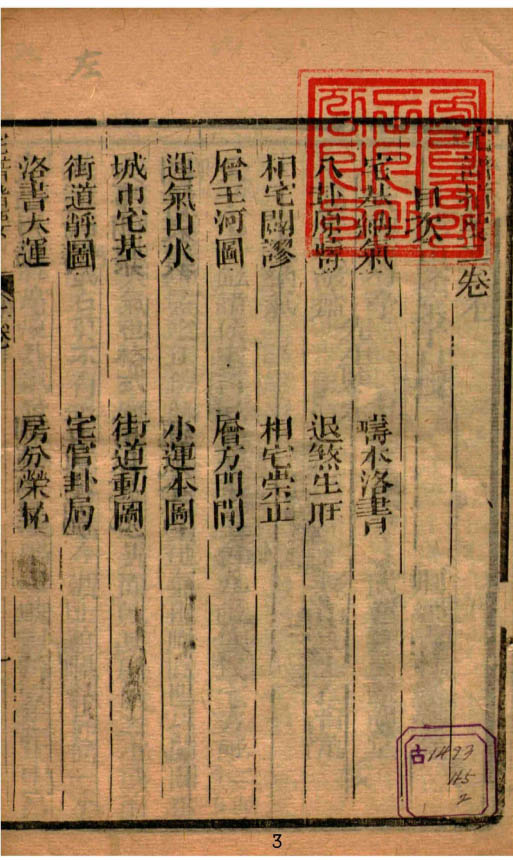 左
卷
目次
宅基納氣　疇本洛書
八卦原　退煞生旺
相宅闢謬　相宅崇正
層王河圖　層方門間
運氣山水　小運本圖
城市宅基　街道動圖
街道靜圖　宅官卦局
洛書大運　房分榮
古1493
165
2
3